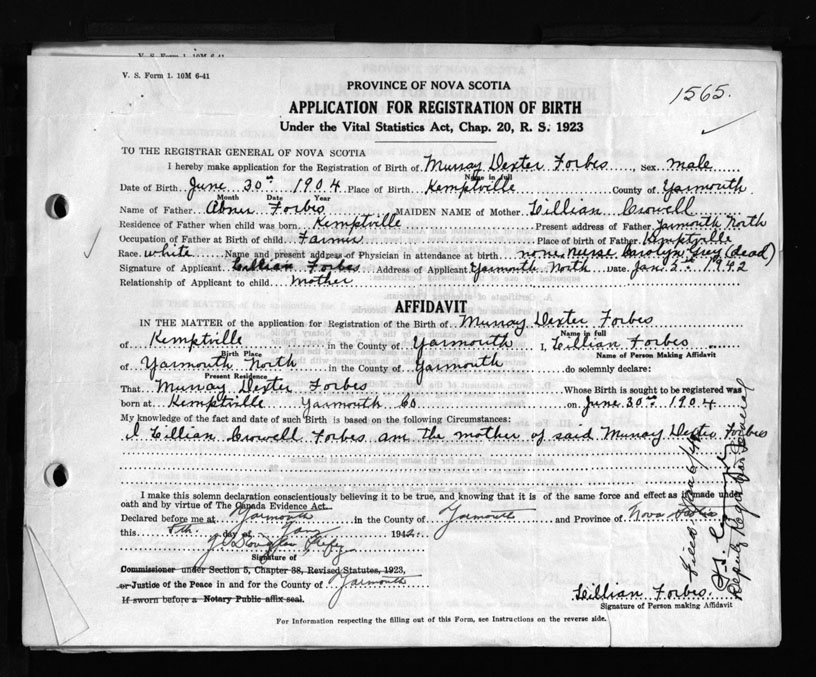 V. S. Form 1. 10M 6-41
V. S. Form 1. 10M 6-41
PROVINCE OF NOVA SCOTIA
1565.
APPLICATION FOR REGISTRATION OF BIRTH
Under the Vital Statistics Act, Chap. 20, R. S. 1923
TO THE REGISTRAR GENERAL OF NOVA SCOTIA
I hereby make application for the Registration of Birth of Murray Dexter Forbes, Sex male
Name in full
Date of Birth June 30th 1904 Place of Birth Kemptville County of Yarmouth
Month Date Year
Name of Father Abner Forbes MAIDEN NAME of Mother Lillian Crowell
Residence of Father when child was born Kemptville Present address of Father Yarmouth North
Occupation of Father at Birth of child Farmer Place of birth of Father Kemptville
Race white Name and present address of Physician in attendance at birth none Nurse Carolyn Grey (dead)
Signature of Applicant Lillian Forbes Address of Applicant Yarmouth North Date Jan 5th 1942
Relationship of Applicant to child mother
AFFIDAVIT
IN THE MATTER of the application for Registration of the Birth of Murray Dexter Forbes
Name in full
of Kemptville in the County of Yarmouth I, Lillian Forbes
Birth Place Name of Person Making Affidavit
of Yarmouth North in the County of Yarmouth do solemnly declare:
Present Residence
That Murray Dexter Forbes Whose Birth is sought to be registered was
born at Kemptville Yarmouth Co on June 30th 1904
My knowledge of the fact and date of such Birth is based on the following Circumstances:
I Lillian Crowell Forbes am the mother of said Murray Dexter Forbes
I make this solemn declaration conscientiously believing it to be true, and knowing that it is of the same force and effect as if made under
oath and by virtue of The Canada Evidence Act.
Declared before me at Yarmouth in the County of Yarmouth and Province of Nova Scotia
this 5th day of Jan 1942
Signature of
Commissioner under Section 5, Chapter 38, Revised Statutes, 1923,
or Justice of the Peace in and for the County of Yarmouth
If sworn before a Notary Public affix seal.
Lillian Forbes.
Signature of Person making Affidavit
For Information respecting the filling out of this Form, see Instructions on the reverse side.
Filed Jan 6/42
Deputy Registrar General